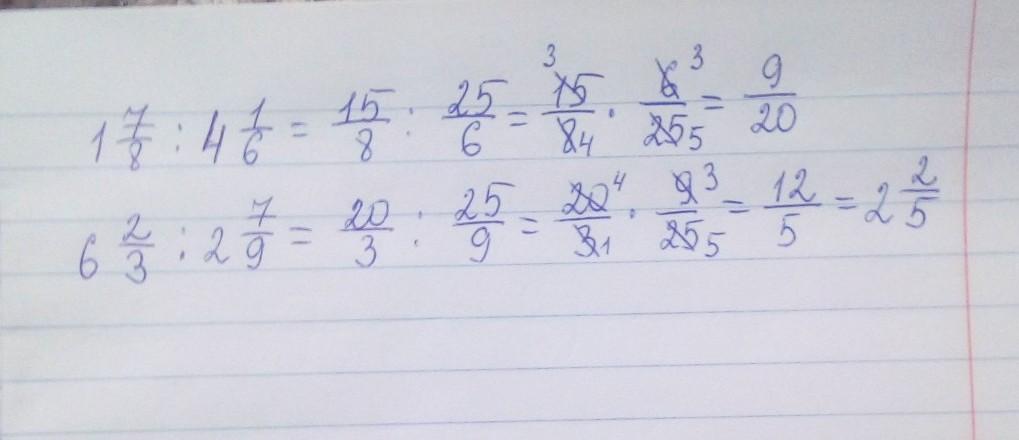 1 7/8 : 4 1/6 = 15/8 : 25/6 = 15 3/8 4 · 6 3/25 5 = 9/20
6 2/3 : 2 7/9 = 20/3 : 25/9 = 20 4/3 1 · 9 3/25 5 = 12/5 = 2 2/5